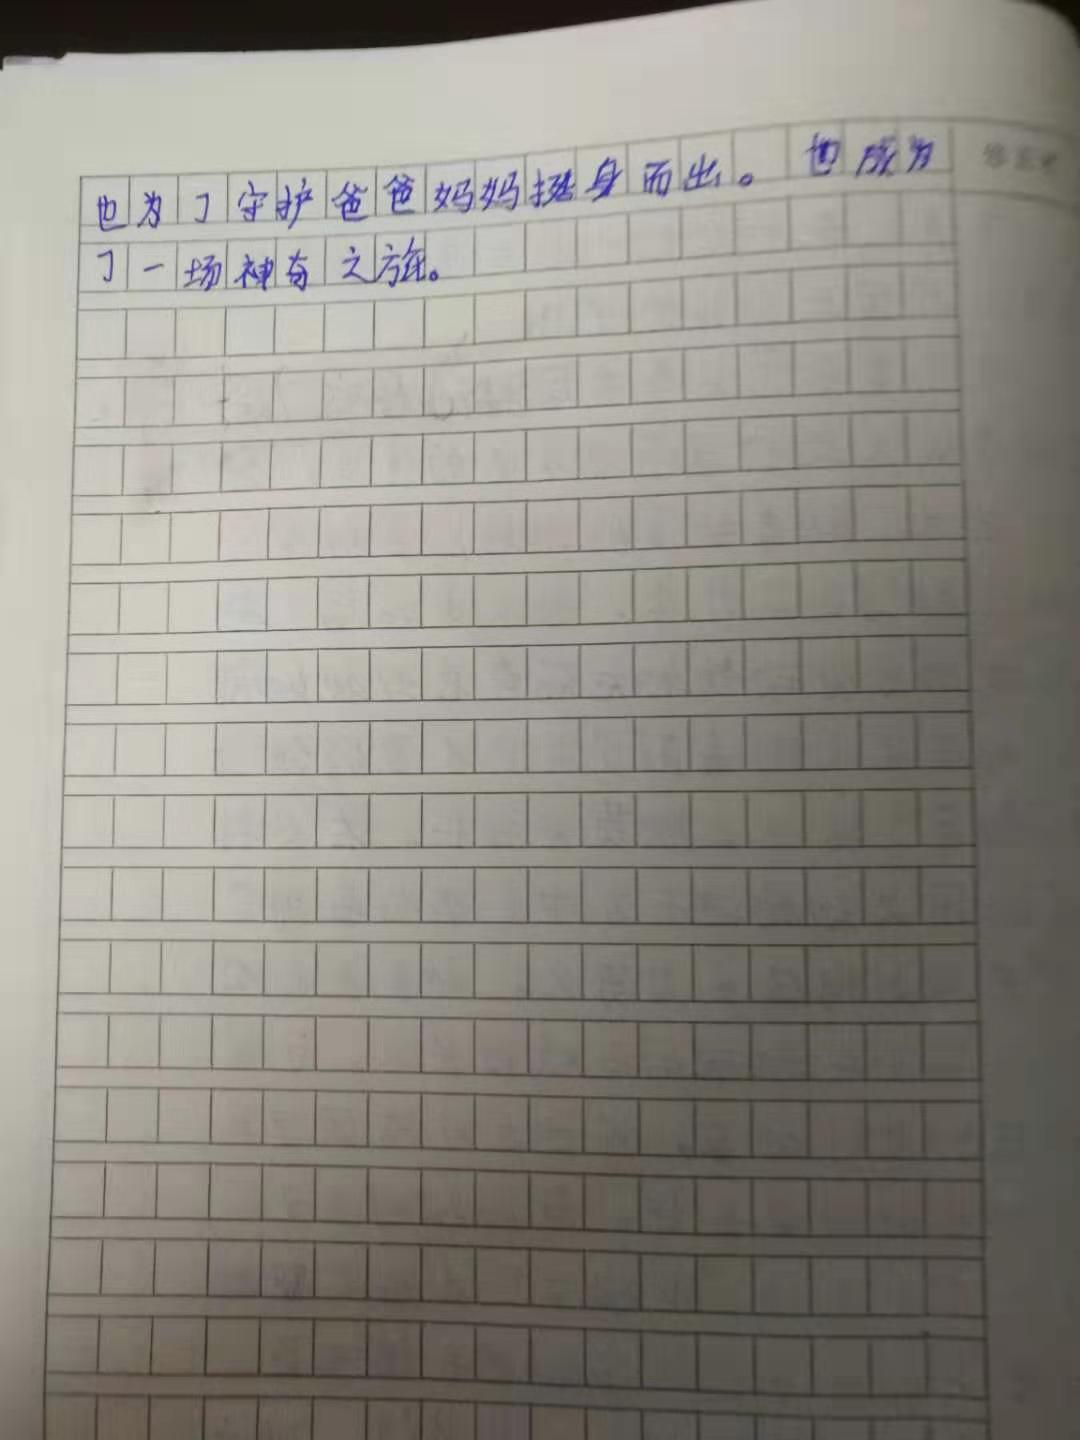 也为了守护爸爸妈妈挺身而出。也成为
了一场神奇之旅。